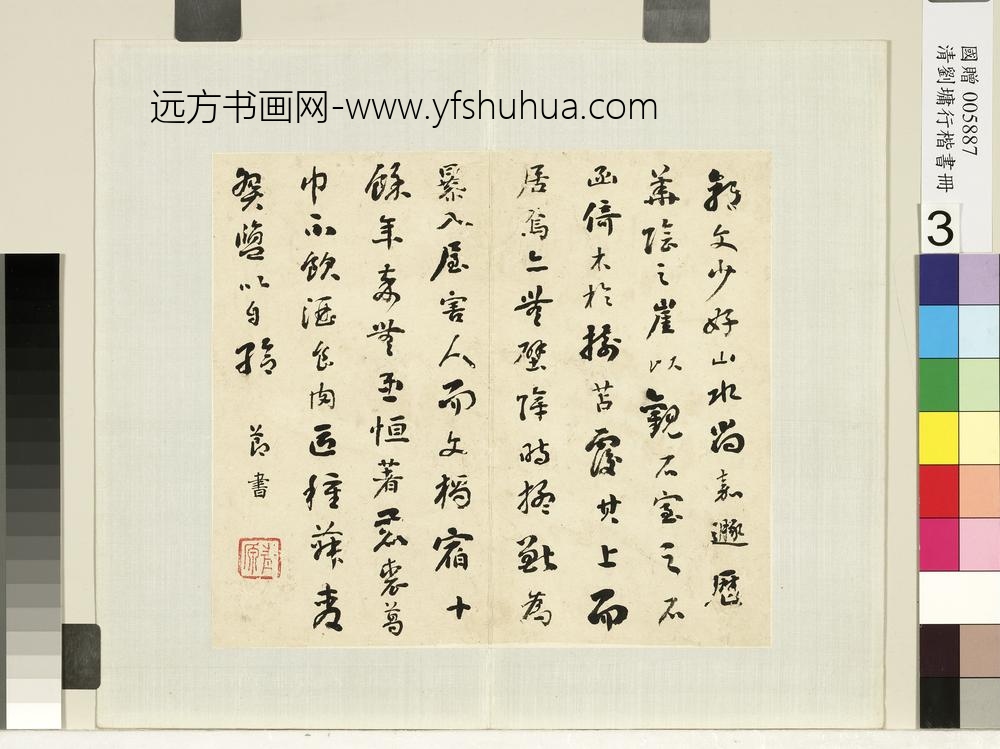 远方书画网-www.yfshuhua.com
國贈 005887
清劉墉行楷書冊
3
郭文少好山水尚嘉遯歷
華陰之崖以觀石室之石
函倚木於樹苫覆其上而
居焉亦無壁障時猛獸為
暴入屋害人而文獨宿十
餘年卒無恙恒著鹿裘葛
巾不飲酒食肉區種菽麥
貿鹽以自給 節書
青原